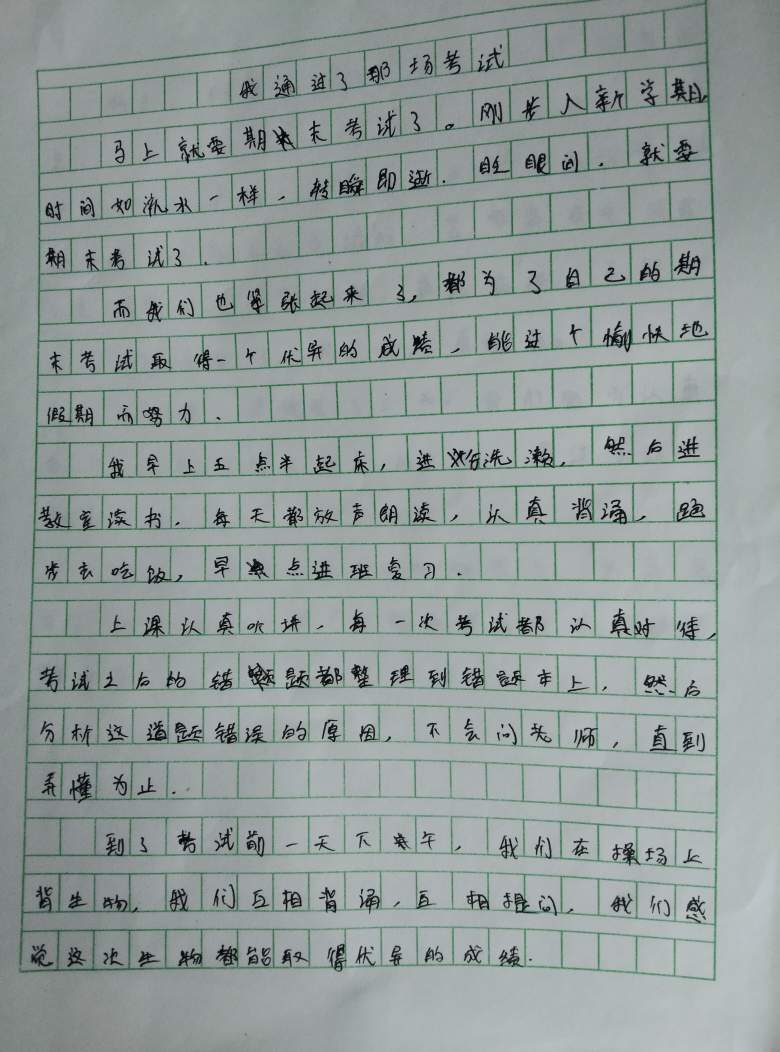 我通过了那场考试
马上就要期末考试了。刚步入新学期,
时间如流水一样,转瞬即逝.眨眼间,就要
期末考试了.
而我们也紧张起来了,都为了自己的期
末考试取得一个优异的成绩,能过个愉快地
假期而努力.
我早上五点半起床,进行洗漱,然后进
教室读书.每天都放声朗读,认真背诵,跑
步去吃饭,早点进班复习.
上课认真听讲,每一次考试都认真对待,
考试之后的错题都整理到错题本上,然后
分析这道题错误的原因,不会问老师,直到
弄懂为止.
到了考试前一天下午,我们在操场上
背生物,我们互相背诵,互相提问,我们感
觉这次生物都能取得优异的成绩.